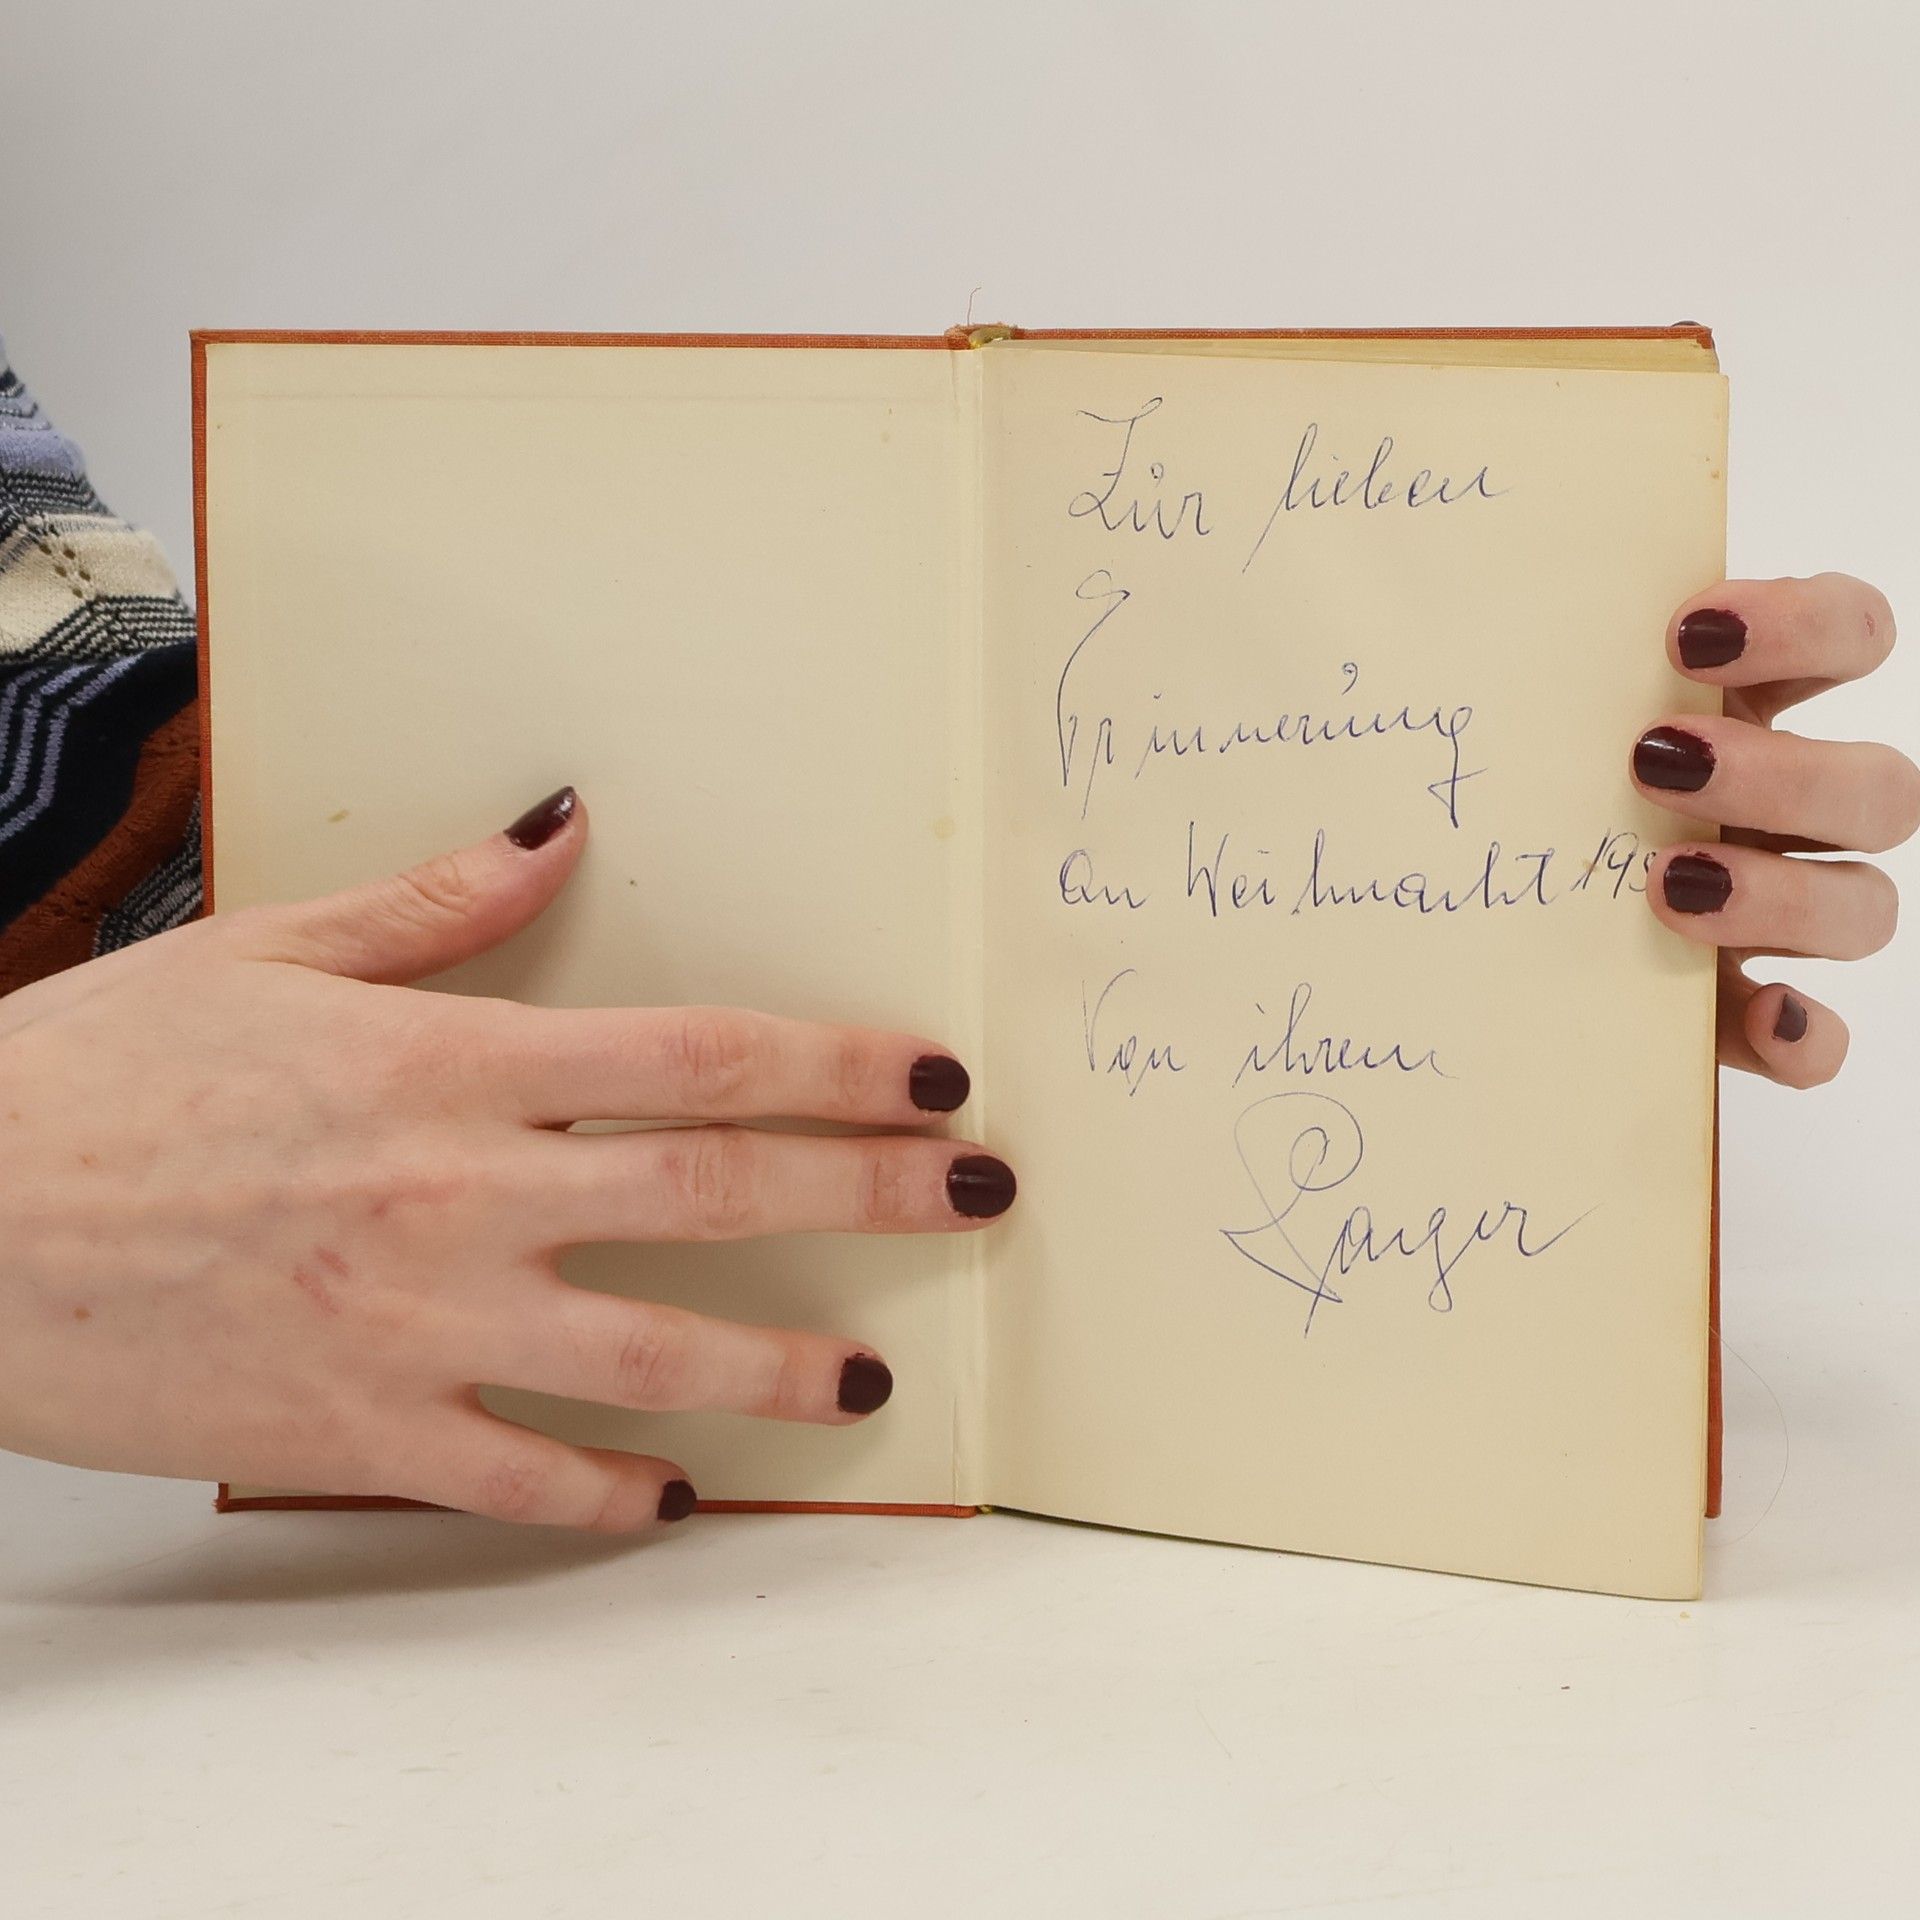 Zur lieben
Erinnerung
an Weihnacht 195
Von ihrem